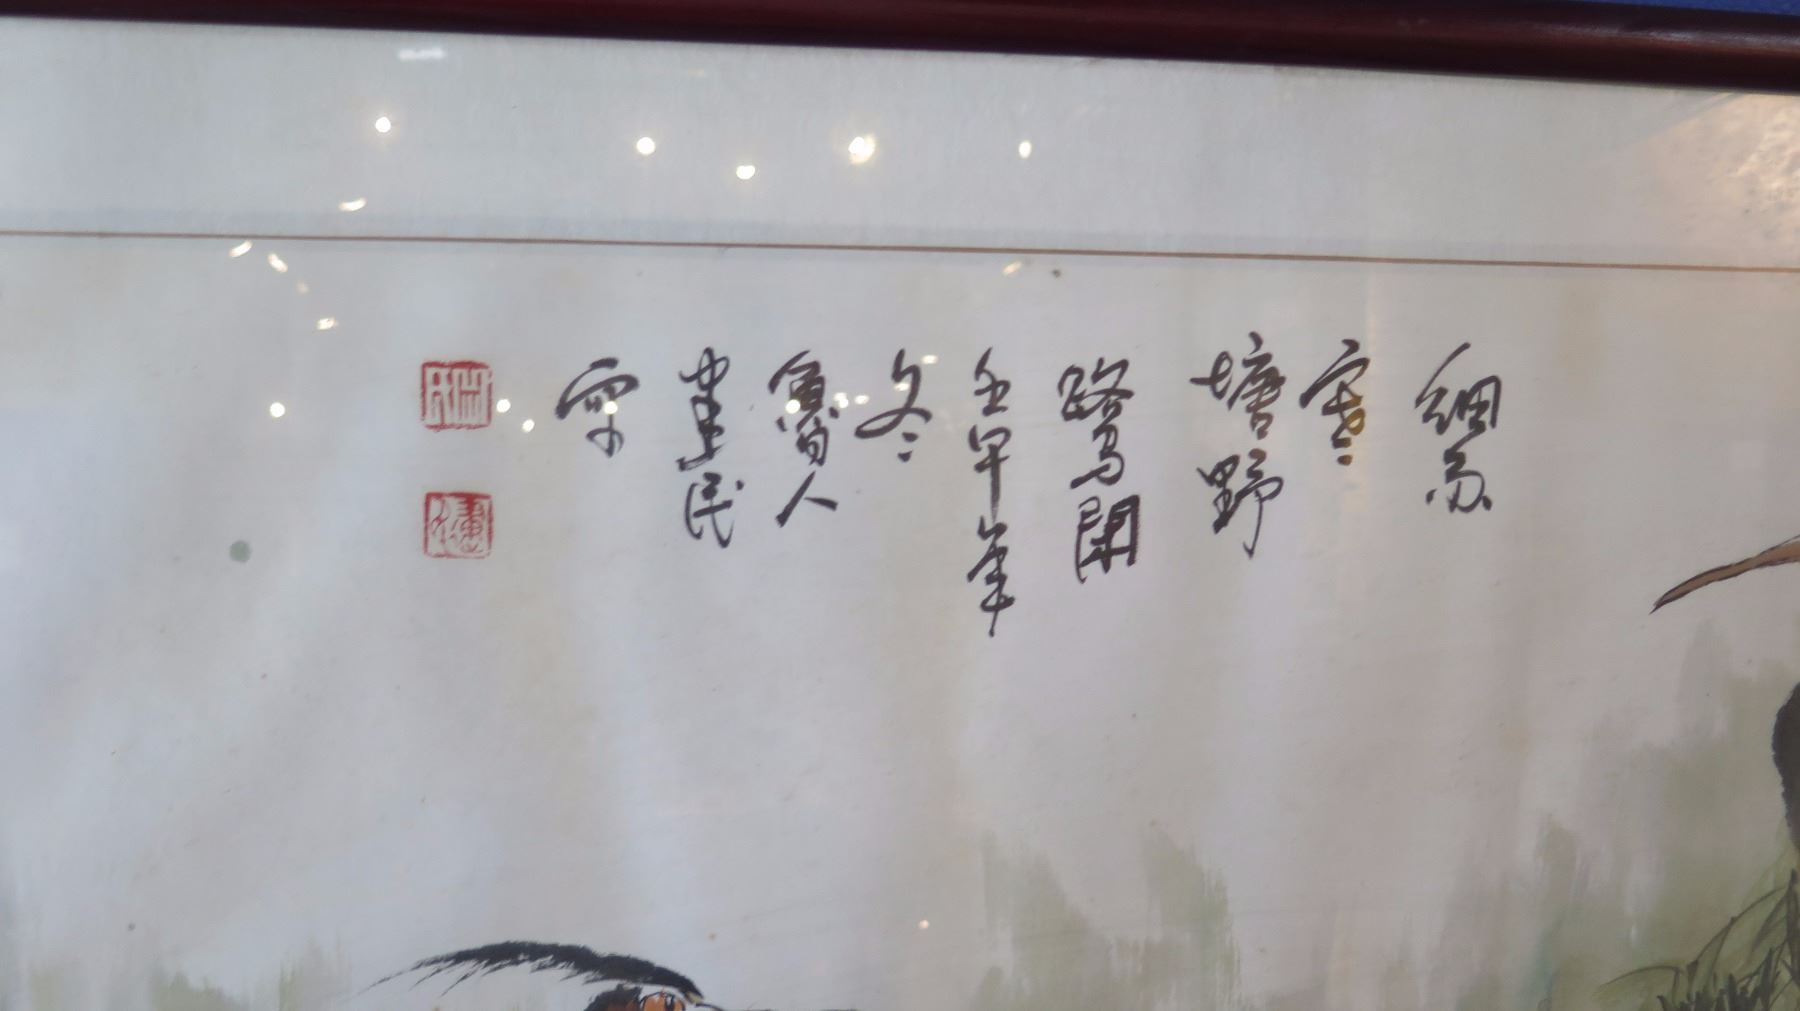 細雨
寒
塘野
鷺閒
壬午年
冬
人
建民
寫